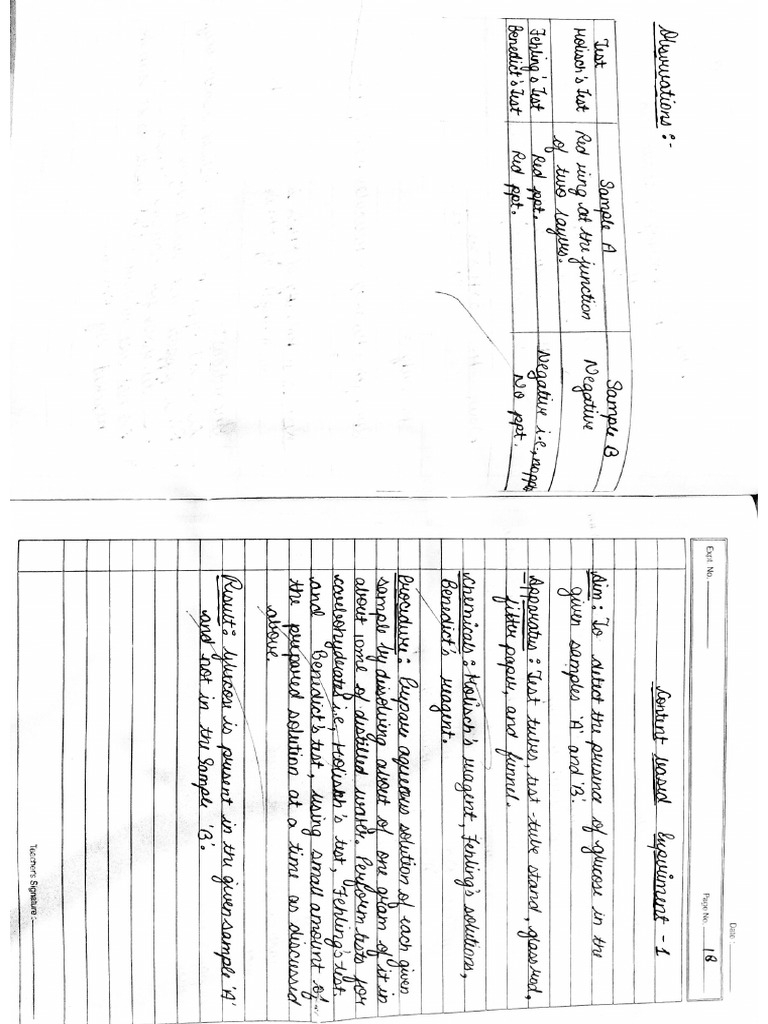 Observations :-
Test Sample A Sample B
Molisch's Test Red ring at the junction of two layers. Negative
Fehling's Test Red ppt. Negative i.e., no ppt
Benedict's Test Red ppt. No ppt.
Date
Expt. No.
Page No. 18
Content based Experiment - 1
Aim : To detect the presence of glucose in the
given samples 'A' and 'B'.
Apparatus : Test tubes, test-tube stand, glass rod,
filter paper, and funnel.
Chemicals : Molisch's reagent, Fehling's solutions,
Benedict's reagent.
Procedure : Prepare aqueous solution of each given
sample by dissolving about of one gram of it in
about 10ml of distilled water. Perform tests for
carbohydrates i.e, Molisch's test, Fehling's test
and Benedict's test, using small amount of
the prepared solution at a time as discussed
above.
Result : Glucose is present in the given sample 'A'
and not in the sample 'B'.
Teacher's Signature :-